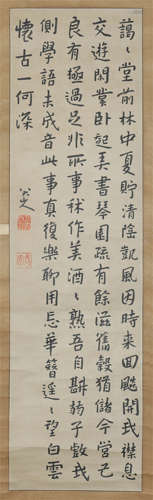 藹〻堂前林中夏貯清陰凱風因時來回飈開我襟息
交遊閑業臥起弄書琴園蔬有餘滋舊穀猶儲今營己
良有極過足非所秫作美酒〻熟吾自斟弱子戲我
側學語未成音此事真復樂聊用忘華簪遙〻望白雲
懷古一何深
八大山人